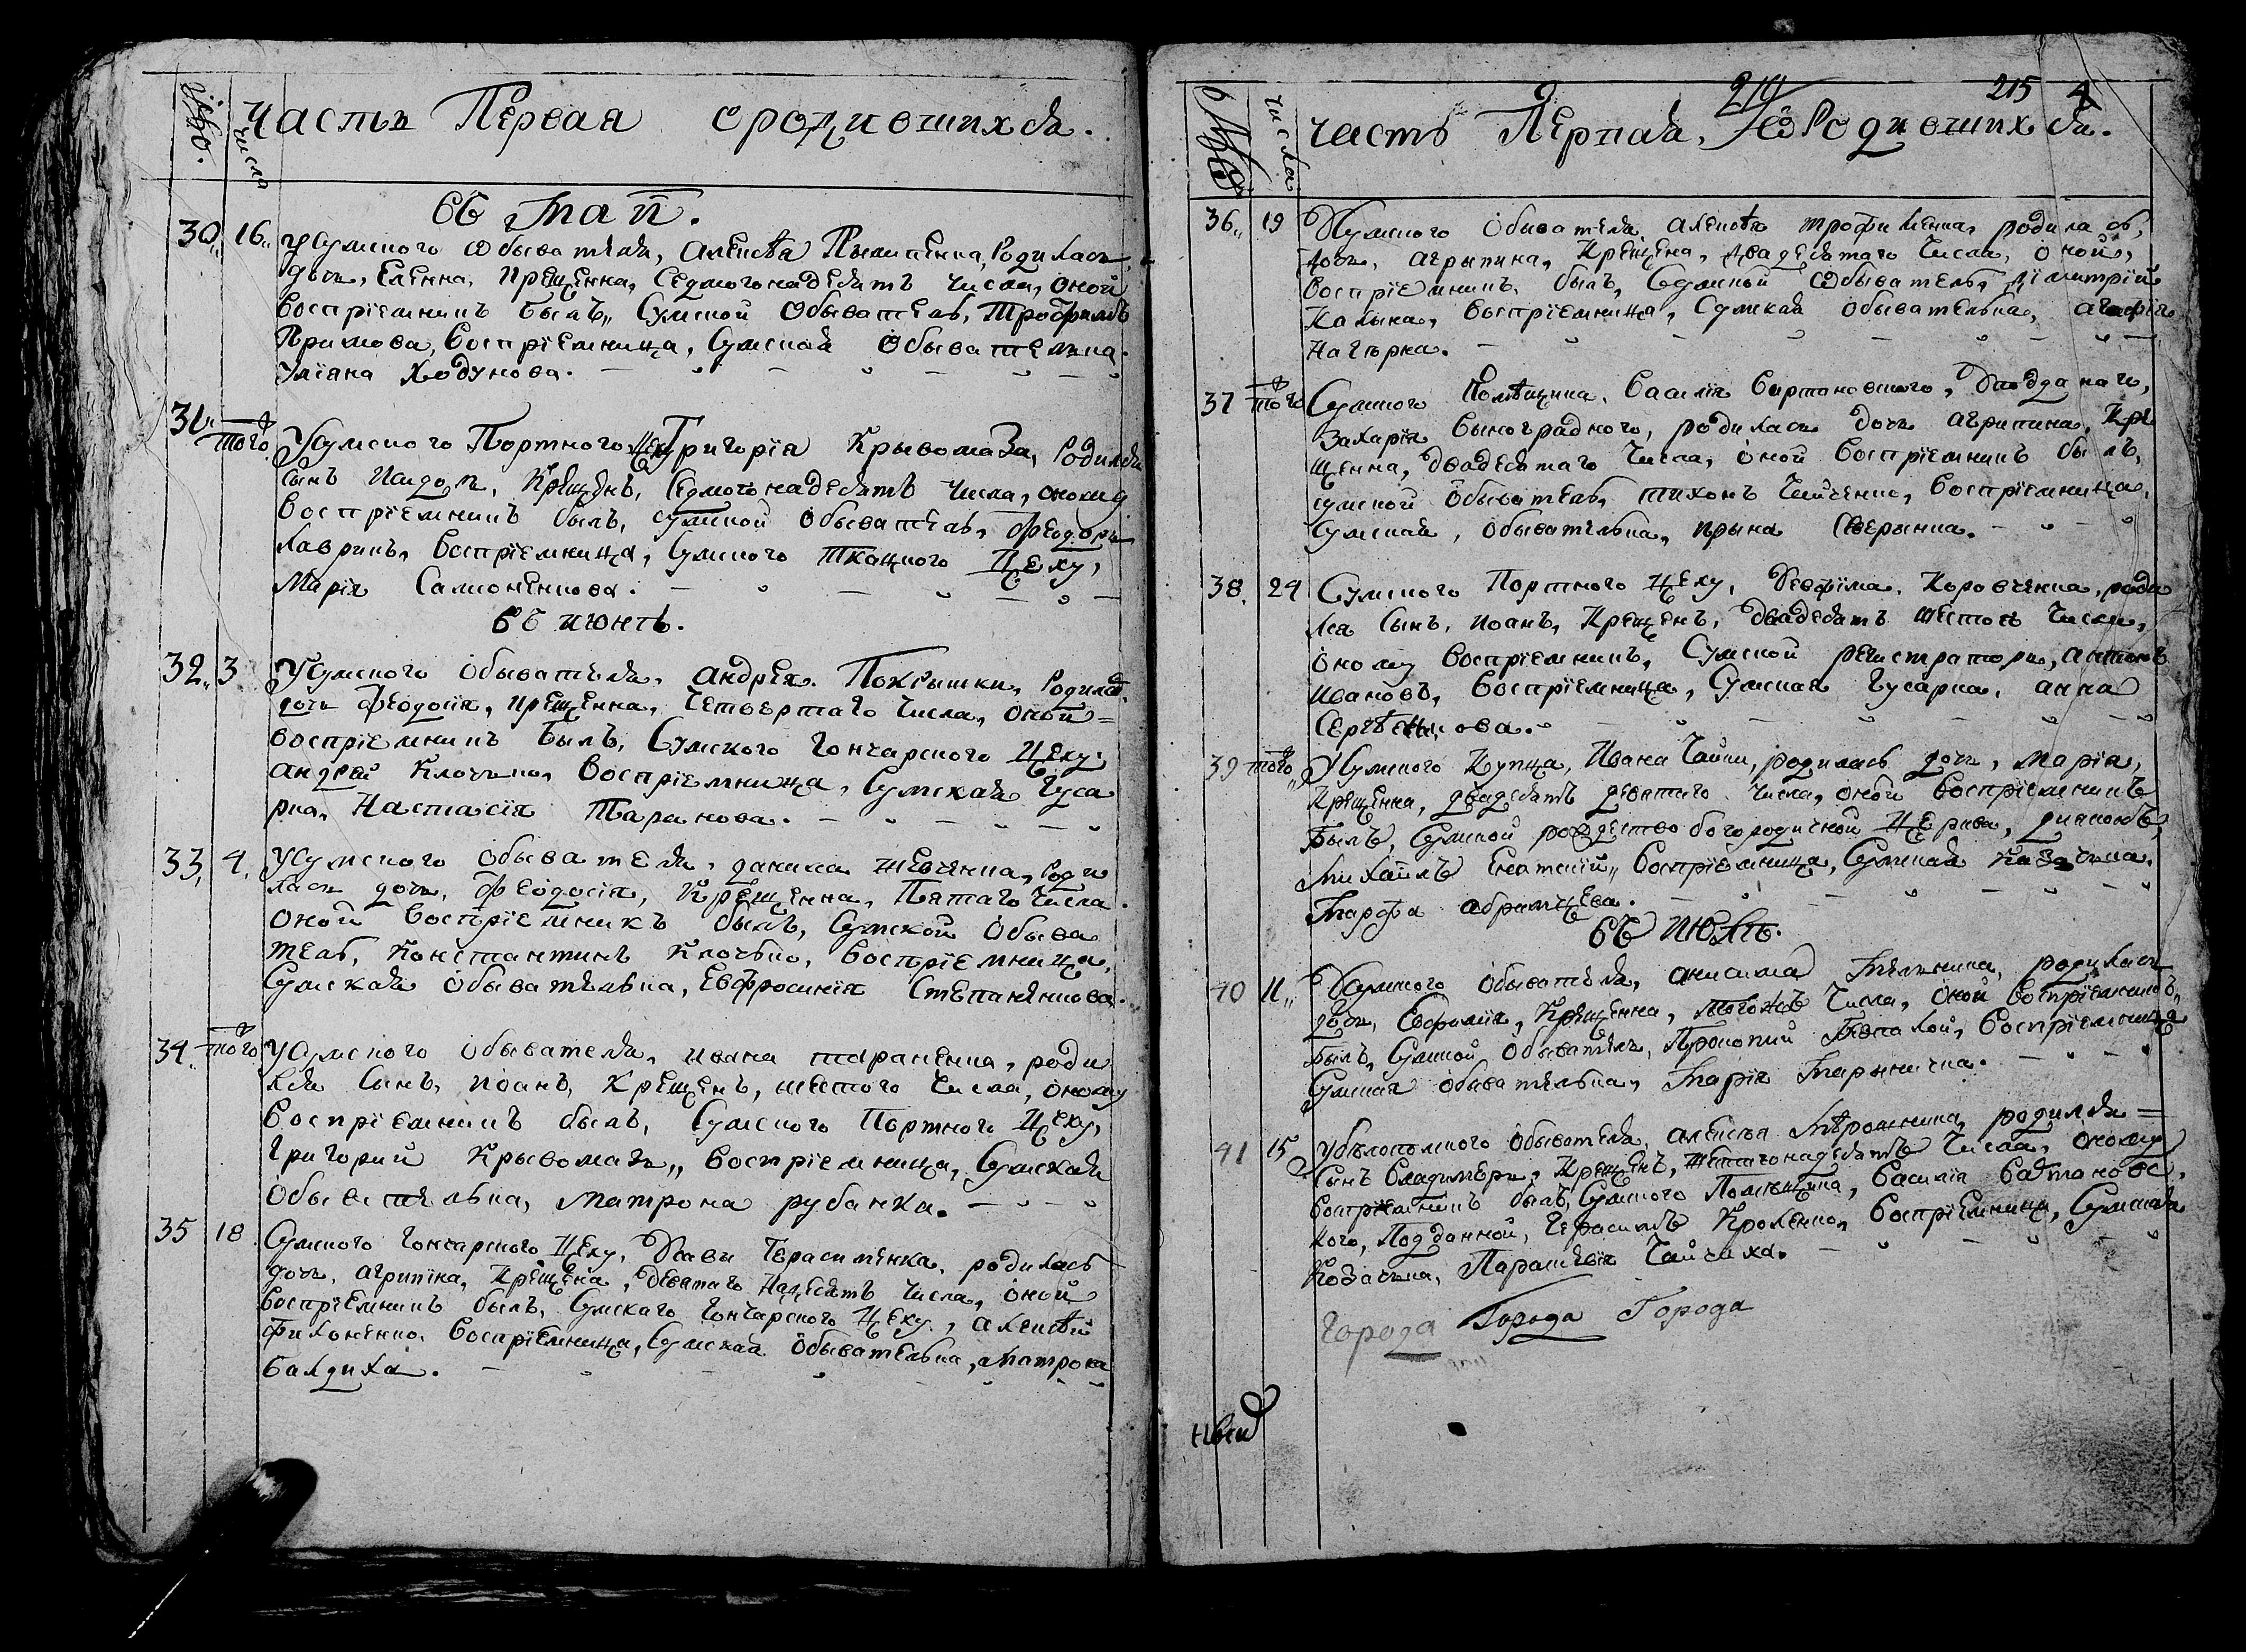 Число
Часть Первая ородившихся.
въ маіи.
30 16 У Сумского Обывателя, Алексѣя родилась
дочь, Еленна, крещенна, седмогонадесять числа, оной
воспріемникъ былъ, Сумской Обыватель, Трофимъ
воспріемница, Сумская Обывателька
Уліана Ходунова.
31 того У Сумского Портного Цеху Григорія Кривомаза, родился
сынъ крещенъ, седмогонадесять числа, оному
воспріемникъ былъ, сумской обыватель, Феодоръ
Лавринъ, воспріемница, Сумского ткацкого Цеху,
Марія Самоненкова.
въ июнѣ.
32 3 У Сумского Обывателя, Андрея Покришки, родилась
дочь Феодосія, крещенна, четвертаго числа, оной
воспріемникъ былъ, Сумского Гончарского Цеху
андрей Клочько, воспріемница, Сумская Гуса
рка, Настасія Таранова.
33 4 У Сумского Обывателя, данила Шевченка, роди
лась дочь, Феодосія, крещенна, пятаго числа
оной воспріемникъ былъ, Сумской Обыва
тель, Константинъ Клочько, воспріемница,
Сумская Обывателька, Евфросинія Степаненкова.
34 того У Сумского обывателя, ивана тараненка, роди
лся сынъ, иоанъ, крещенъ, шестого числа, оному
воспріемникъ былъ, Сумского Портного Цеху,
Григорий Кривомазъ, воспріемница, Сумская
Обывателька, матрона рубанка.
35 18 Сумского Гончарского Цеху, Савы Герасименка, родилась
дочь, агрипина, крещена, девятагонадесять числа, оной
воспріемникъ былъ, Сумскаго Гончарского Цеху, алексѣй
Филоненко, воспріемница, Сумская Обывателька, матрона
Балдиха.
214 215 4
Числа
Часть Перпая, О Родившихся.
36 19 У Сумского Обывателя алексѣя трофименка, родилась,
дочь, агрыпина, крещена, двадесятаго числа, оной,
воспріемникъ былъ, Сумской Обыватель, димитрій
Калына, воспріемница, Сумская обывателька, агафія
Нагърна.
37 того Сумского Помѣщика, василія подданаго,
Захарія выноградного, родилась дочь агрипина, кре
щенна, двадесятаго числа, оной воспріемникъ былъ,
сумской обыватель, тихонъ воспріемница,
Сумская, обывателька, ирына Сверынка.
38 24 Сумского Портного Цеху, Евфіма Коровченка, роди
лся сынъ, иоанъ, крещенъ, двадесять шестого числа,
оному воспріемникъ, Сумской регистраторъ, антонъ
ивановъ, воспріемница, Сумская гусарка, анна
39 того У Сумского Купца, Ивана Чайки, родилась дочь, марія,
крещенна, двадесять девятаго числа, оной воспріемникъ
былъ, Сумской рождество богородичной Церкви, диаконъ,
михаилъ воспріемница, Сумская Казачька,
Марфа абрамцева.
въ июлѣ.
40 11 У Сумского Обывателя, анисима родилась
дочь, Евфимія, крещенна, тогожъ числа, оной воспріемникъ
былъ, Сумской обыватель, Прокопий воспріемница
Сумская обывателька, марія
41 15 У бѣлополского обывателя, алексѣя родился
сынъ владимеръ, крещенъ, шестагонадесять числа, оному
воспріемникъ былъ, Сумского Помѣщика, василія
кого, подданной, Герасимъ Кроленко, воспріемница, Сумская
Козачька, Параскевія Чайчиха.
Города Города Города